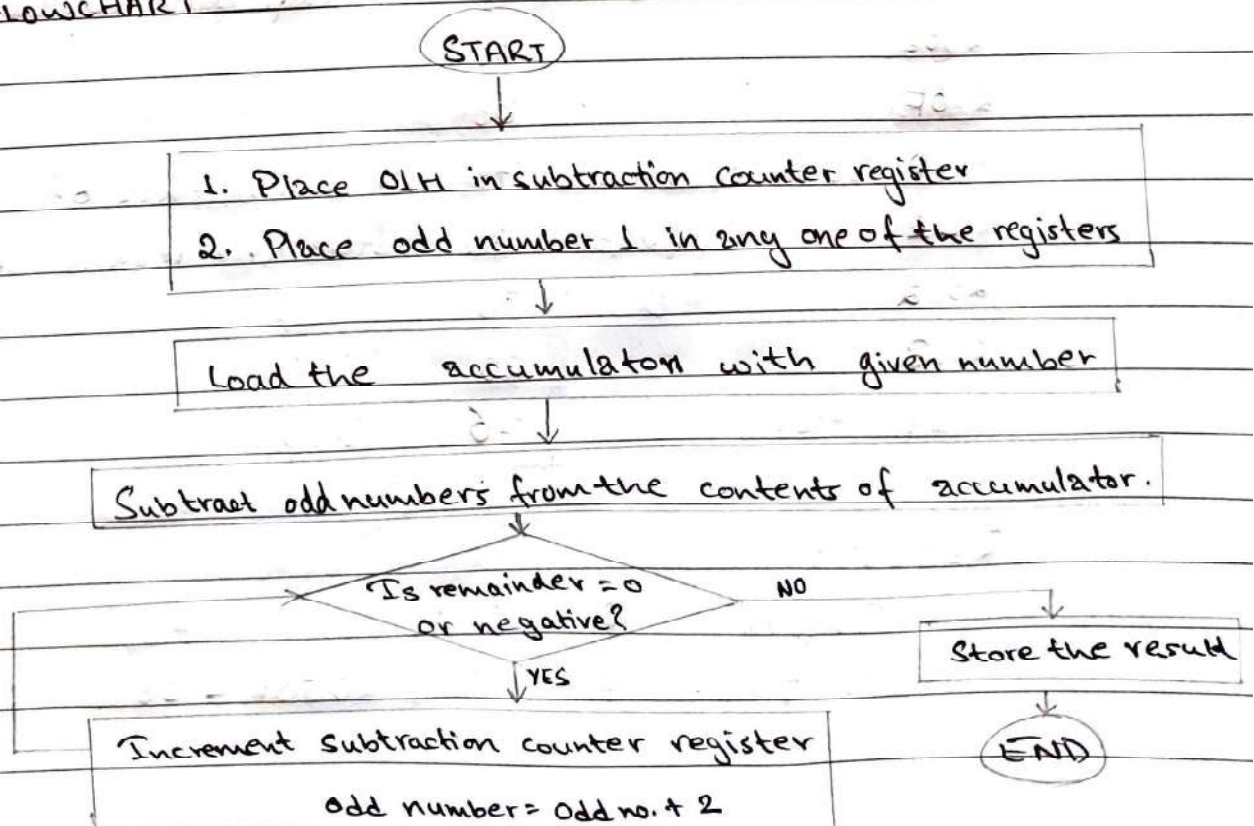 FLOWCHART
START
1. Place 01H in subtraction counter register
2. Place odd number 1 in any one of the registers
Load the accumulator with given number
Subtract odd numbers from the contents of accumulator.
Is remainder = 0
or negative?
NO
YES
Store the result
Increment subtraction counter register
odd number = Odd no. + 2
END